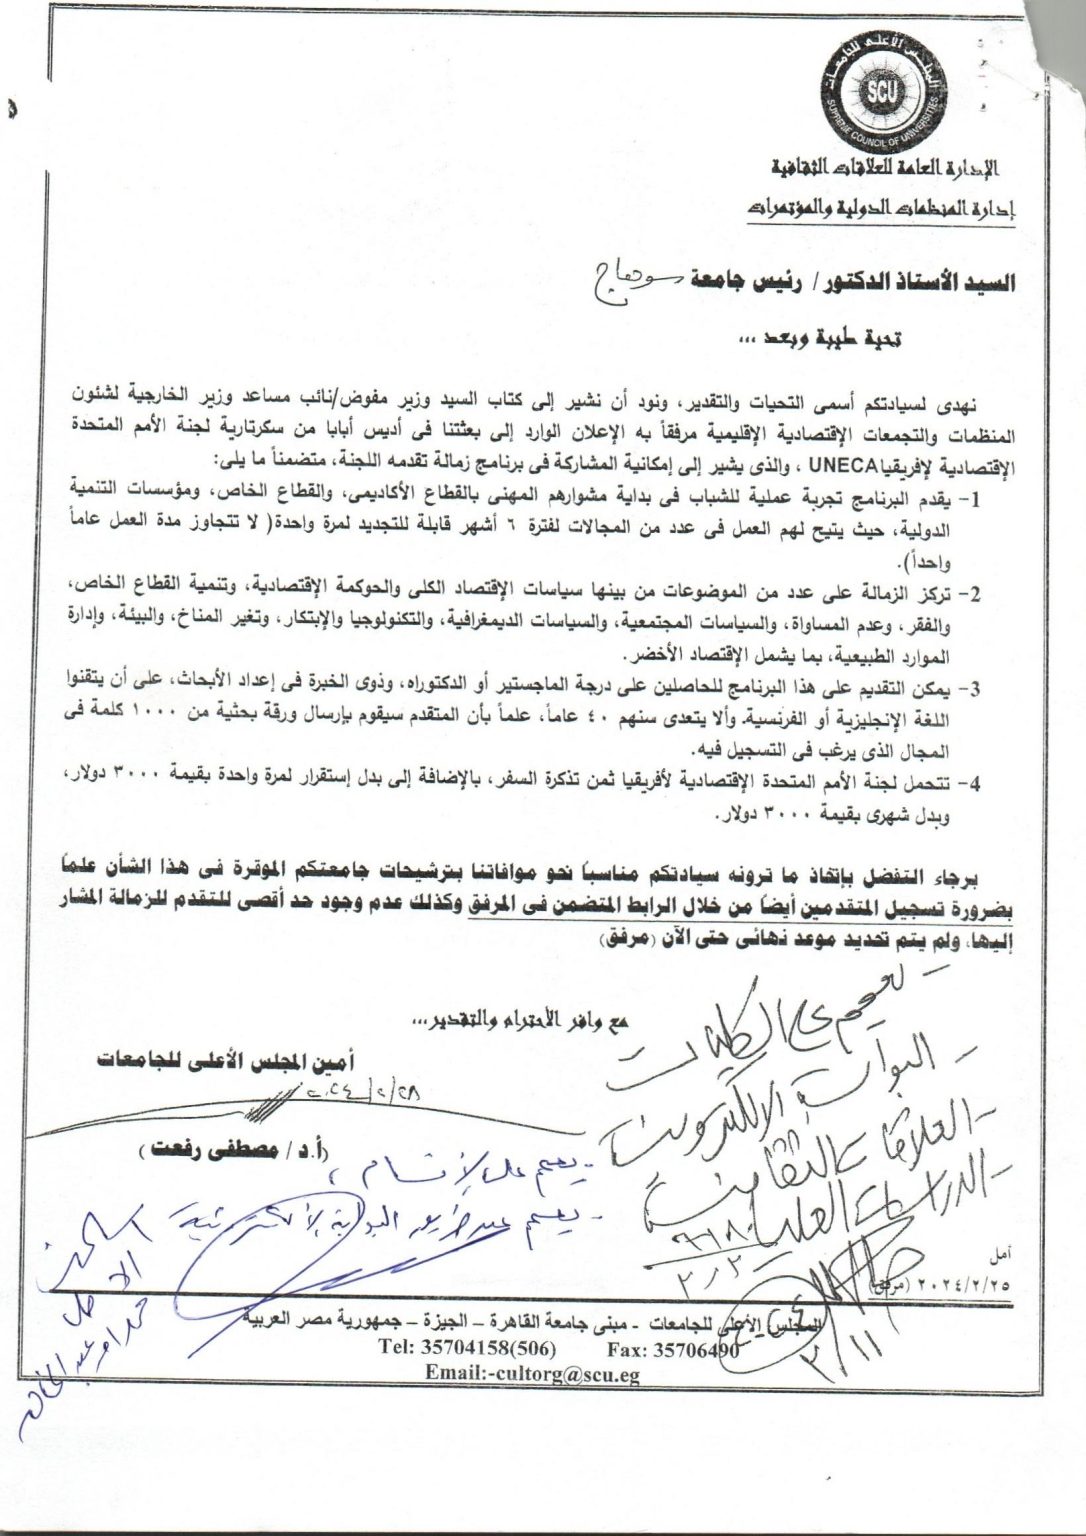 المجلس الأعلى للجامعات
SCU
SUPREME COUNCIL OF UNIVERSITIES
الإدارة العامة للعلاقات الثقافية
إدارة المنظمات الدولية والمؤتمرات
السيد الأستاذ الدكتور/ رئيس جامعة سوهاج
تحية طيبة وبعد ...
نهدى لسيادتكم أسمى التحيات والتقدير، ونود أن نشير إلى كتاب السيد وزير مفوض/نائب مساعد وزير الخارجية لشئون
المنظمات والتجمعات الإقتصادية الإقليمية مرفقاً به الإعلان الوارد إلى بعثتنا فى أديس أبابا من سكرتارية لجنة الأمم المتحدة
الإقتصادية لإفريقيا UNECA ، والذى يشير إلى إمكانية المشاركة فى برنامج زمالة تقدمه اللجنة، متضمناً ما يلى:
1- يقدم البرنامج تجربة عملية للشباب فى بداية مشوارهم المهنى بالقطاع الأكاديمى، والقطاع الخاص، ومؤسسات التنمية
الدولية، حيث يتيح لهم العمل فى عدد من المجالات لفترة ٦ أشهر قابلة للتجديد لمرة واحدة( لا تتجاوز مدة العمل عاماً
واحداً).
2- تركز الزمالة على عدد من الموضوعات من بينها سياسات الإقتصاد الكلى والحوكمة الإقتصادية، وتنمية القطاع الخاص،
والفقر، وعدم المساواة، والسياسات المجتمعية، والسياسات الديمغرافية، والتكنولوجيا والإبتكار، وتغير المناخ، والبيئة، وإدارة
الموارد الطبيعية، بما يشمل الإقتصاد الأخضر.
3- يمكن التقديم على هذا البرنامج للحاصلين على درجة الماجستير أو الدكتوراه، وذوى الخبرة فى إعداد الأبحاث، على أن يتقنوا
اللغة الإنجليزية أو الفرنسية. وألا يتعدى سنهم ٤٠ عاماً، علماً بأن المتقدم سيقوم بإرسال ورقة بحثية من ١٠٠٠ كلمة فى
المجال الذى يرغب فى التسجيل فيه.
4- تتحمل لجنة الأمم المتحدة الإقتصادية لأفريقيا ثمن تذكرة السفر، بالإضافة إلى بدل إستقرار لمرة واحدة بقيمة ٣٠٠٠ دولار،
وبدل شهرى بقيمة ٣٠٠٠ دولار.
برجاء التفضل بإتخاذ ما ترونه سيادتكم مناسباً نحو موافاتنا بترشيحات جامعتكم الموقرة فى هذا الشأن علماً
بضرورة تسجيل المتقدمين أيضاً من خلال الرابط المتضمن فى المرفق وكذلك عدم وجود حد أقصى للتقدم للزمالة المشار
إليها، ولم يتم تحديد موعد نهائى حتى الآن (مرفق)
مع وافر الأحترام والتقدير...
أمين المجلس الأعلى للجامعات
٢٠٢٤/٢/٢٨
(أ.د/ مصطفى رفعت )
- تعميم على الكليات
- البوابة الالكترونية
- العلاقات الثقافية
- الدراسات العليا
- يعمم على الأقسام
- يعمم عبر طريق البوابة الالكترونية
٣/١١
أمل
٢٠٢٤/٢/٢٥ (مرفق)
المجلس الأعلى للجامعات - مبنى جامعة القاهرة – الجيزة – جمهورية مصر العربية
Tel: 35704158(506) Fax: 35706490
Email:-cultorg@scu.eg